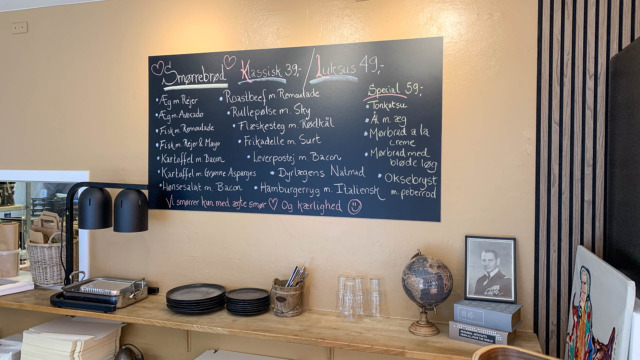 Smørrebrød Klassisk 39,- / Luksus 49,-
• Æg m. Rejer
• Æg m. Avocado
• Fisk m. Remoulade
• Fisk m. Rejer & Mayo
• Kartoffel m. Bacon
• Kartoffel m. Grønne Asparges
• Hønsesalat m. Bacon
• Roastbeef m. Remoulade
• Rullepølse m. Sky
• Flæskesteg m. Rødkål
• Frikadelle m. Surt
• Leverpostej m. Bacon
• Dyrlægens Natmad
• Hamburgerryg m. Italiensk
Special 59,-
• Tonkatsu
• Ål m. æg
• Mørbrad a la
creme
• Mørbrad med
bløde løg
• Oksebryst
m. peberrod
Vi smørrer kun med ægte smør ♡ Og kærlighed ☺